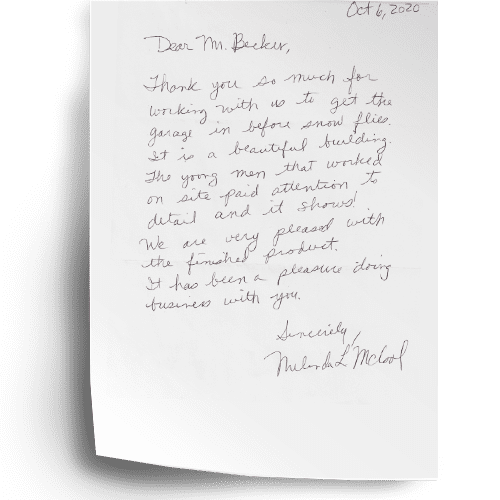 Oct 6, 2020
Dear Mr. Becker,
Thank you so much for
working with us to get the
garage in before snow flies.
It is a beautiful building.
The young men that worked
on site paid attention to
detail and it shows!
We are very pleased with
the finished product.
It has been a pleasure doing
business with you.
Sincerely,
Melinda L McCool